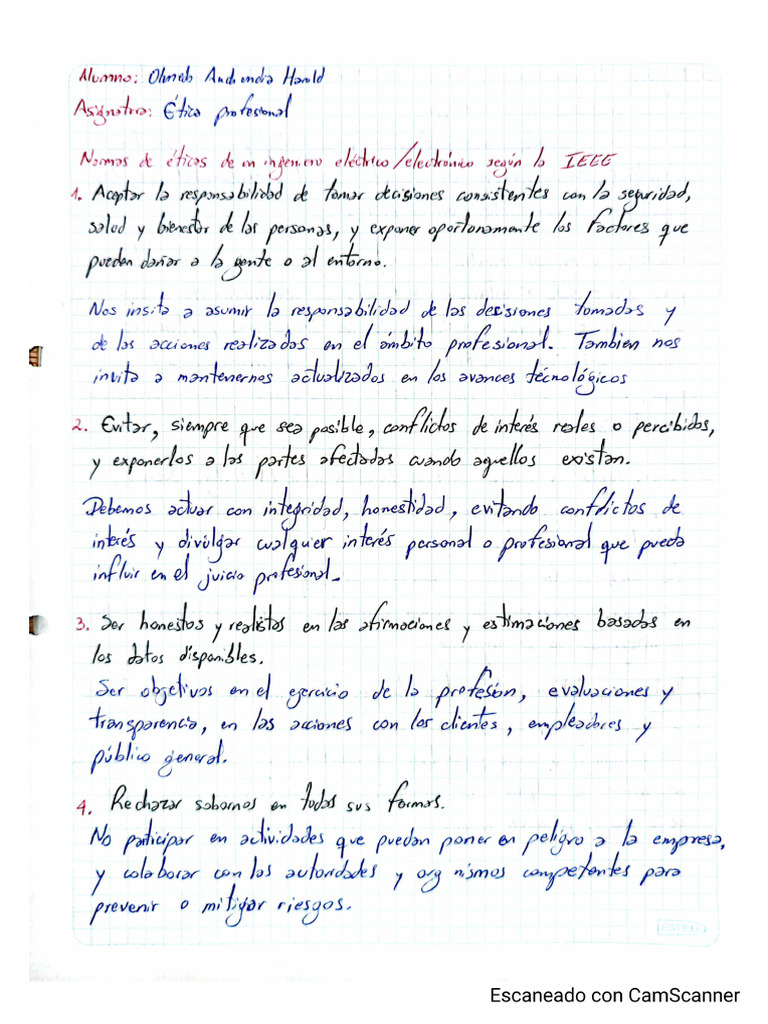 Alumno: Harold
Asignatura: Ética profesional
Normas de éticas de un ingeniero eléctrico/electrónico según la IEEE
1. Aceptar la responsabilidad de tomar decisiones consistentes con la seguridad,
salud y bienestar de las personas, y exponer oportunamente los factores que
puedan dañar a la gente o al entorno.
Nos insita a asumir la responsabilidad de las decisiones tomadas y
de las acciones realizadas en el ámbito profesional. Tambien nos
invita a mantenernos actualizados en los avances técnológicos
2. Evitar, siempre que sea posible, conflictos de interés reales o percibidos,
y exponerlos a las partes afectadas cuando aquellos existan.
Debemos actuar con integridad, honestidad, evitando conflictos de
interés y divulgar cualquier interés personal o profesional que pueda
influir en el juicio profesional.
3. Ser honestos y realistas en las afirmaciones y estimaciones basadas en
los datos disponibles.
Ser objetivos en el ejercicio de la profesión, evaluaciones y
transparencia, en las acciones con los clientes, empleadores y
público general.
4. Rechazar sobornos en todas sus formas.
No participar en actividades que puedan poner en peligro a la empresa,
y colaborar con las autoridades y org nismos competentes para
prevenir o mitigar riesgos.
Escaneado con CamScanner